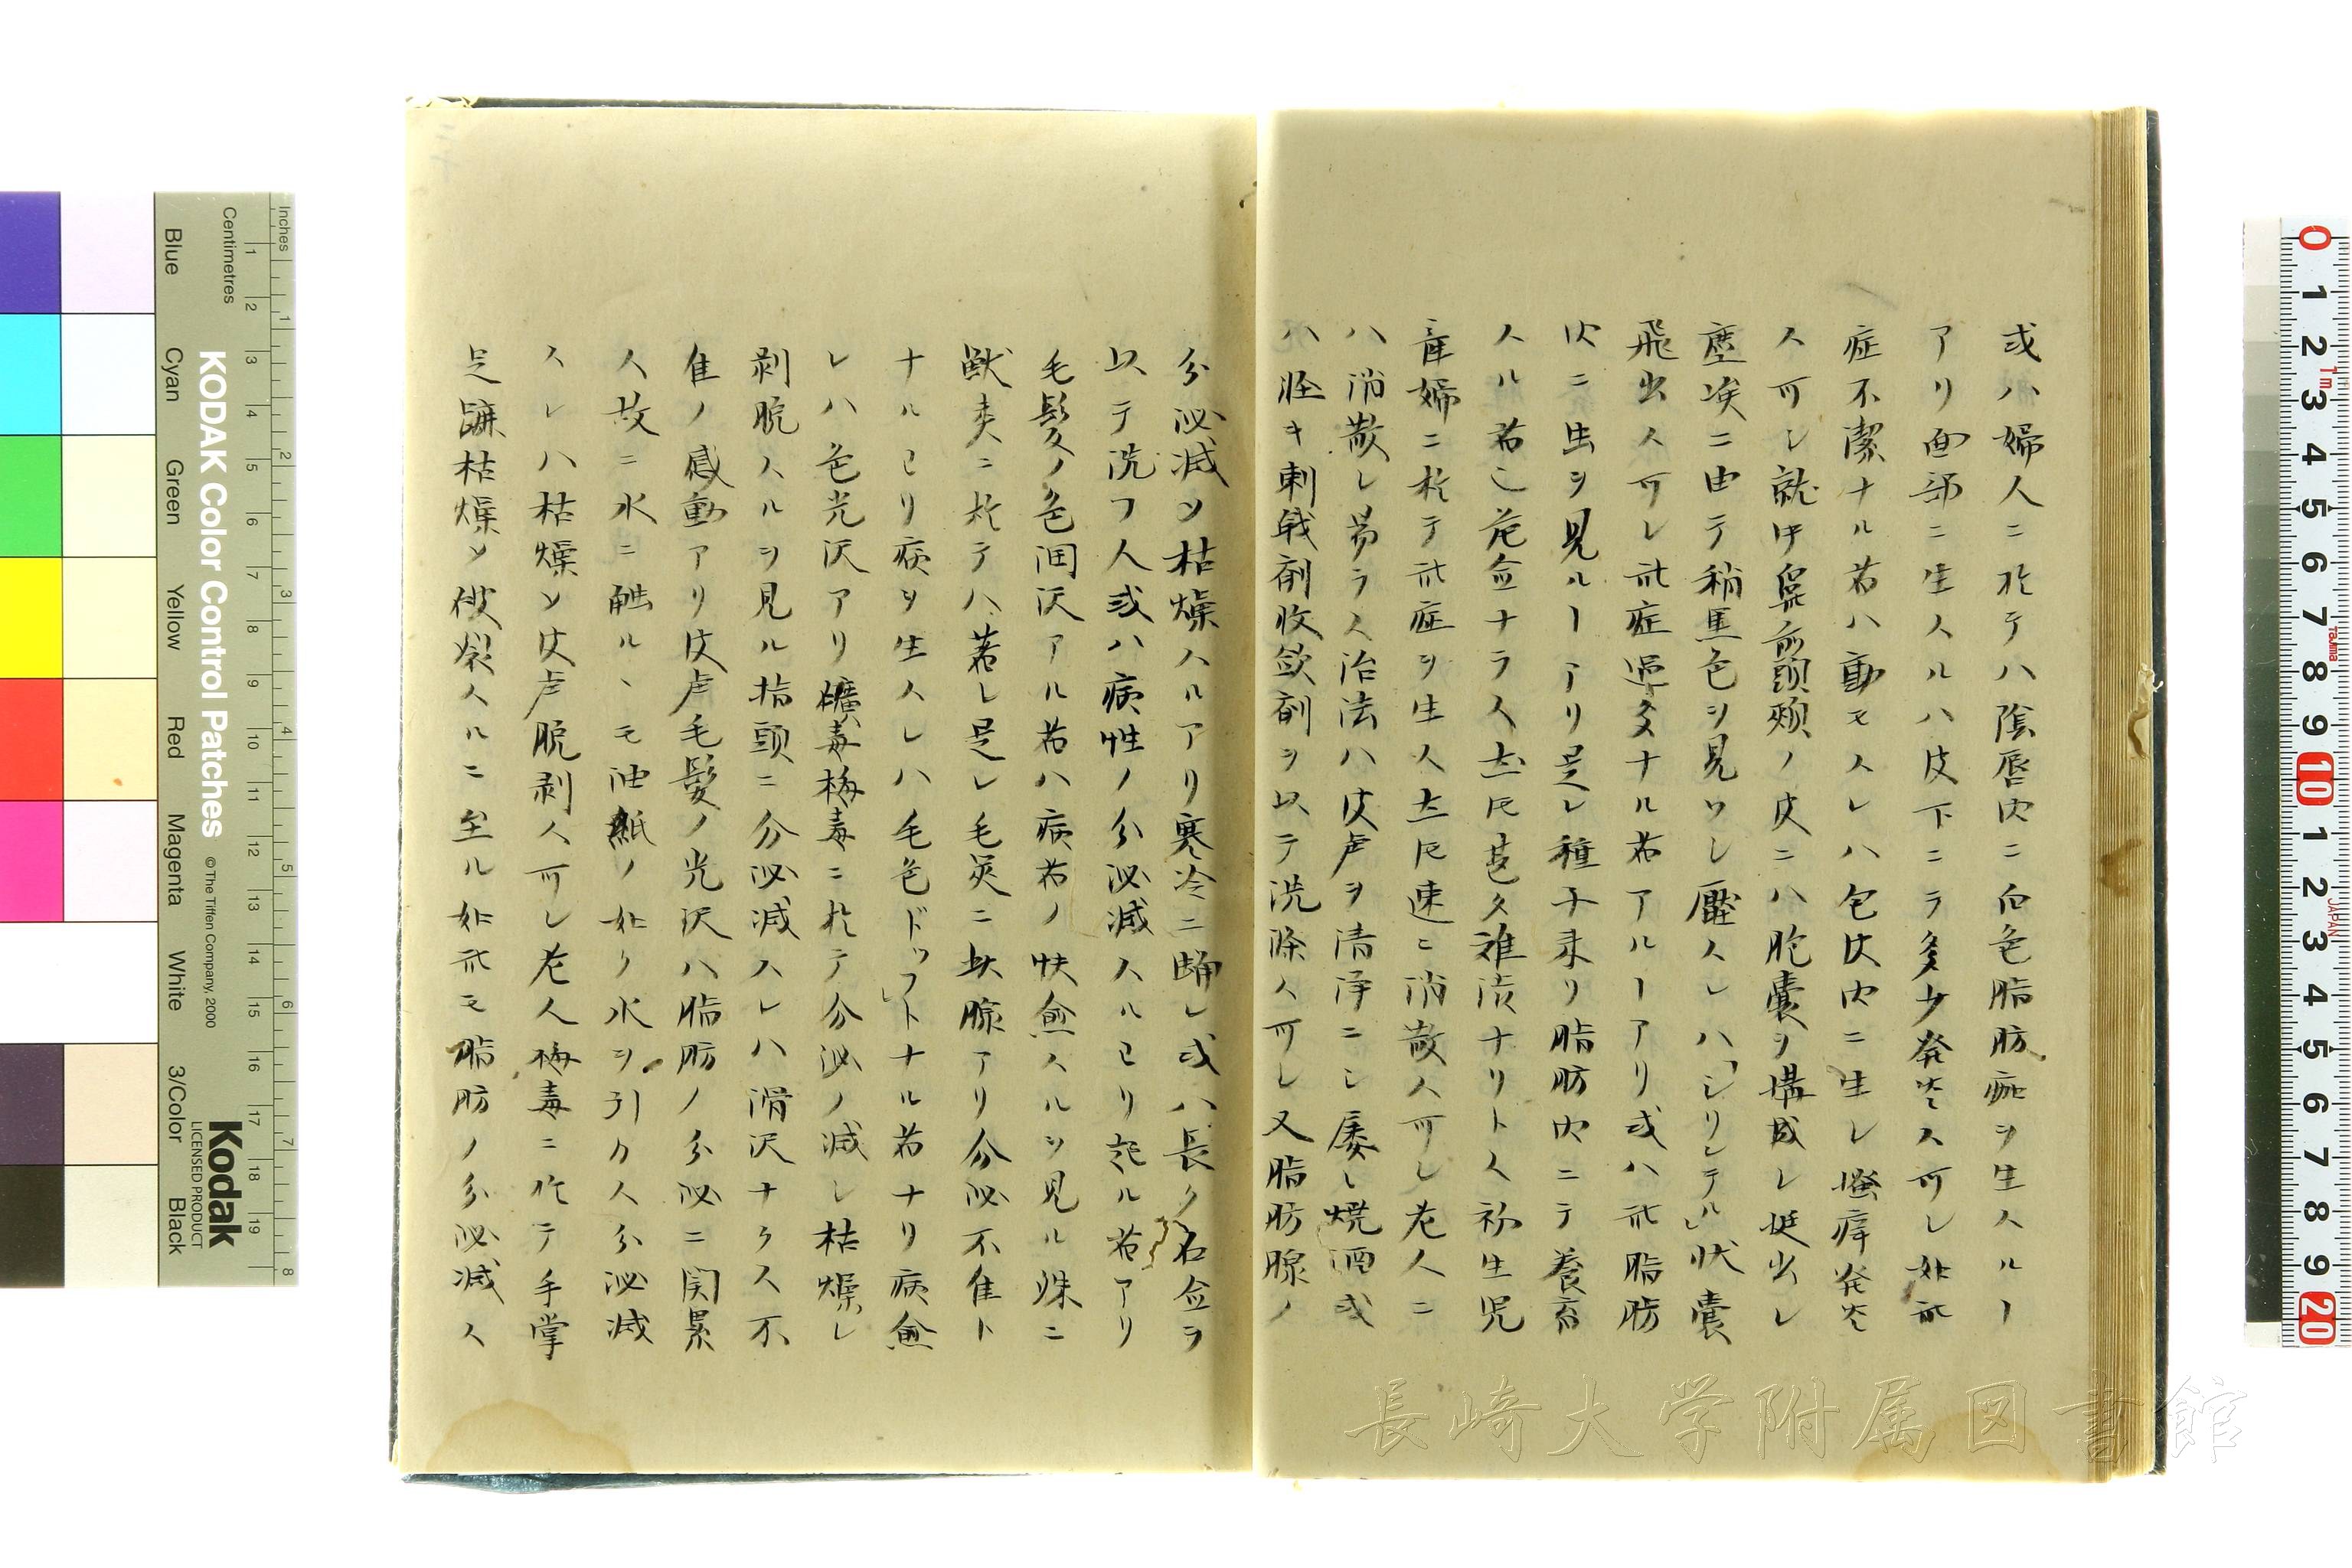 或ハ婦人ニ於テハ陰唇内ニ白色脂肪疵ヲ生スルヿ
アリ面部ニ生スルハ皮下ニラ多少発生ス可シ如此
症不潔ナル者ハ動モスレハ包皮内ニ生シ掻痒発生
ス可シ就中鼻前頭頬ノ皮ニハ胞嚢ヲ構成シ挺出シ
塵埃ニ由テ稍黒色ヲ見ワシ壓スレハ「シリンデル」状嚢
飛出ス可シ此症過多ナル者アルヿアリ或ハ此脂肪
内ニ虫ヲ見ルヿアリ是レ種子来リ脂肪内ニテ養育
スル者也危金ナラス𪜈甚タ難渋ナリトス初生児
産婦ニ於テ此症ヲ生ス𪜈速ニ消散ス可シ老人ニ
ハ消散シ易ラス治法ハ皮膚ヲ清浄ニシ屡々焼酒或
ハ軽キ刺戟剤收斂剤ヲ以テ洗滌ス可シ又脂肪腺ノ
分泌減ソ枯燥スルアリ寒冷ニ踊レ或ハ長ク石鹸ヲ
以テ洗フ人或ハ病性ノ分泌減スルヨリ起ル者アリ
毛髪ノ色潤沢アル者ハ病者ノ快愈スルヲ見ル殊ニ
獣类ニ於テハ著シ是レ毛荚ニ此腺アリ分泌不佳ト
ナルヨリ病ヲ生スレハ毛色「ドッフ」トナル者ナリ病愈
レハ色光沢アリ礦毒梅毒ニ於テ分泌ノ減シ枯燥シ
剥脱スルヲ見ル指頭ニ分泌減スレハ滑沢ナラス不
隹ノ感動アリ皮膚毛髪ノ光沢ハ脂肪ノ分泌ニ関累
ス故ニ水ニ触ルヽモ油紙ノ如ク水ヲ引カス分泌減
スレハ枯燥ソ皮膚脱剥ス可シ老人梅毒ニ於テ手掌
足蹠枯燥ソ破裂スルニ至ル如此モ脂肪ノ分泌減ス
Inches
Centimetres
KODAK Color Control Patches
© The Tiffen Company, 2000
Kodak
LICENSED PRODUCT
Blue
Cyan
Green
Yellow
Red
Magenta
White
3/Color
Black
長崎大学附属図書館